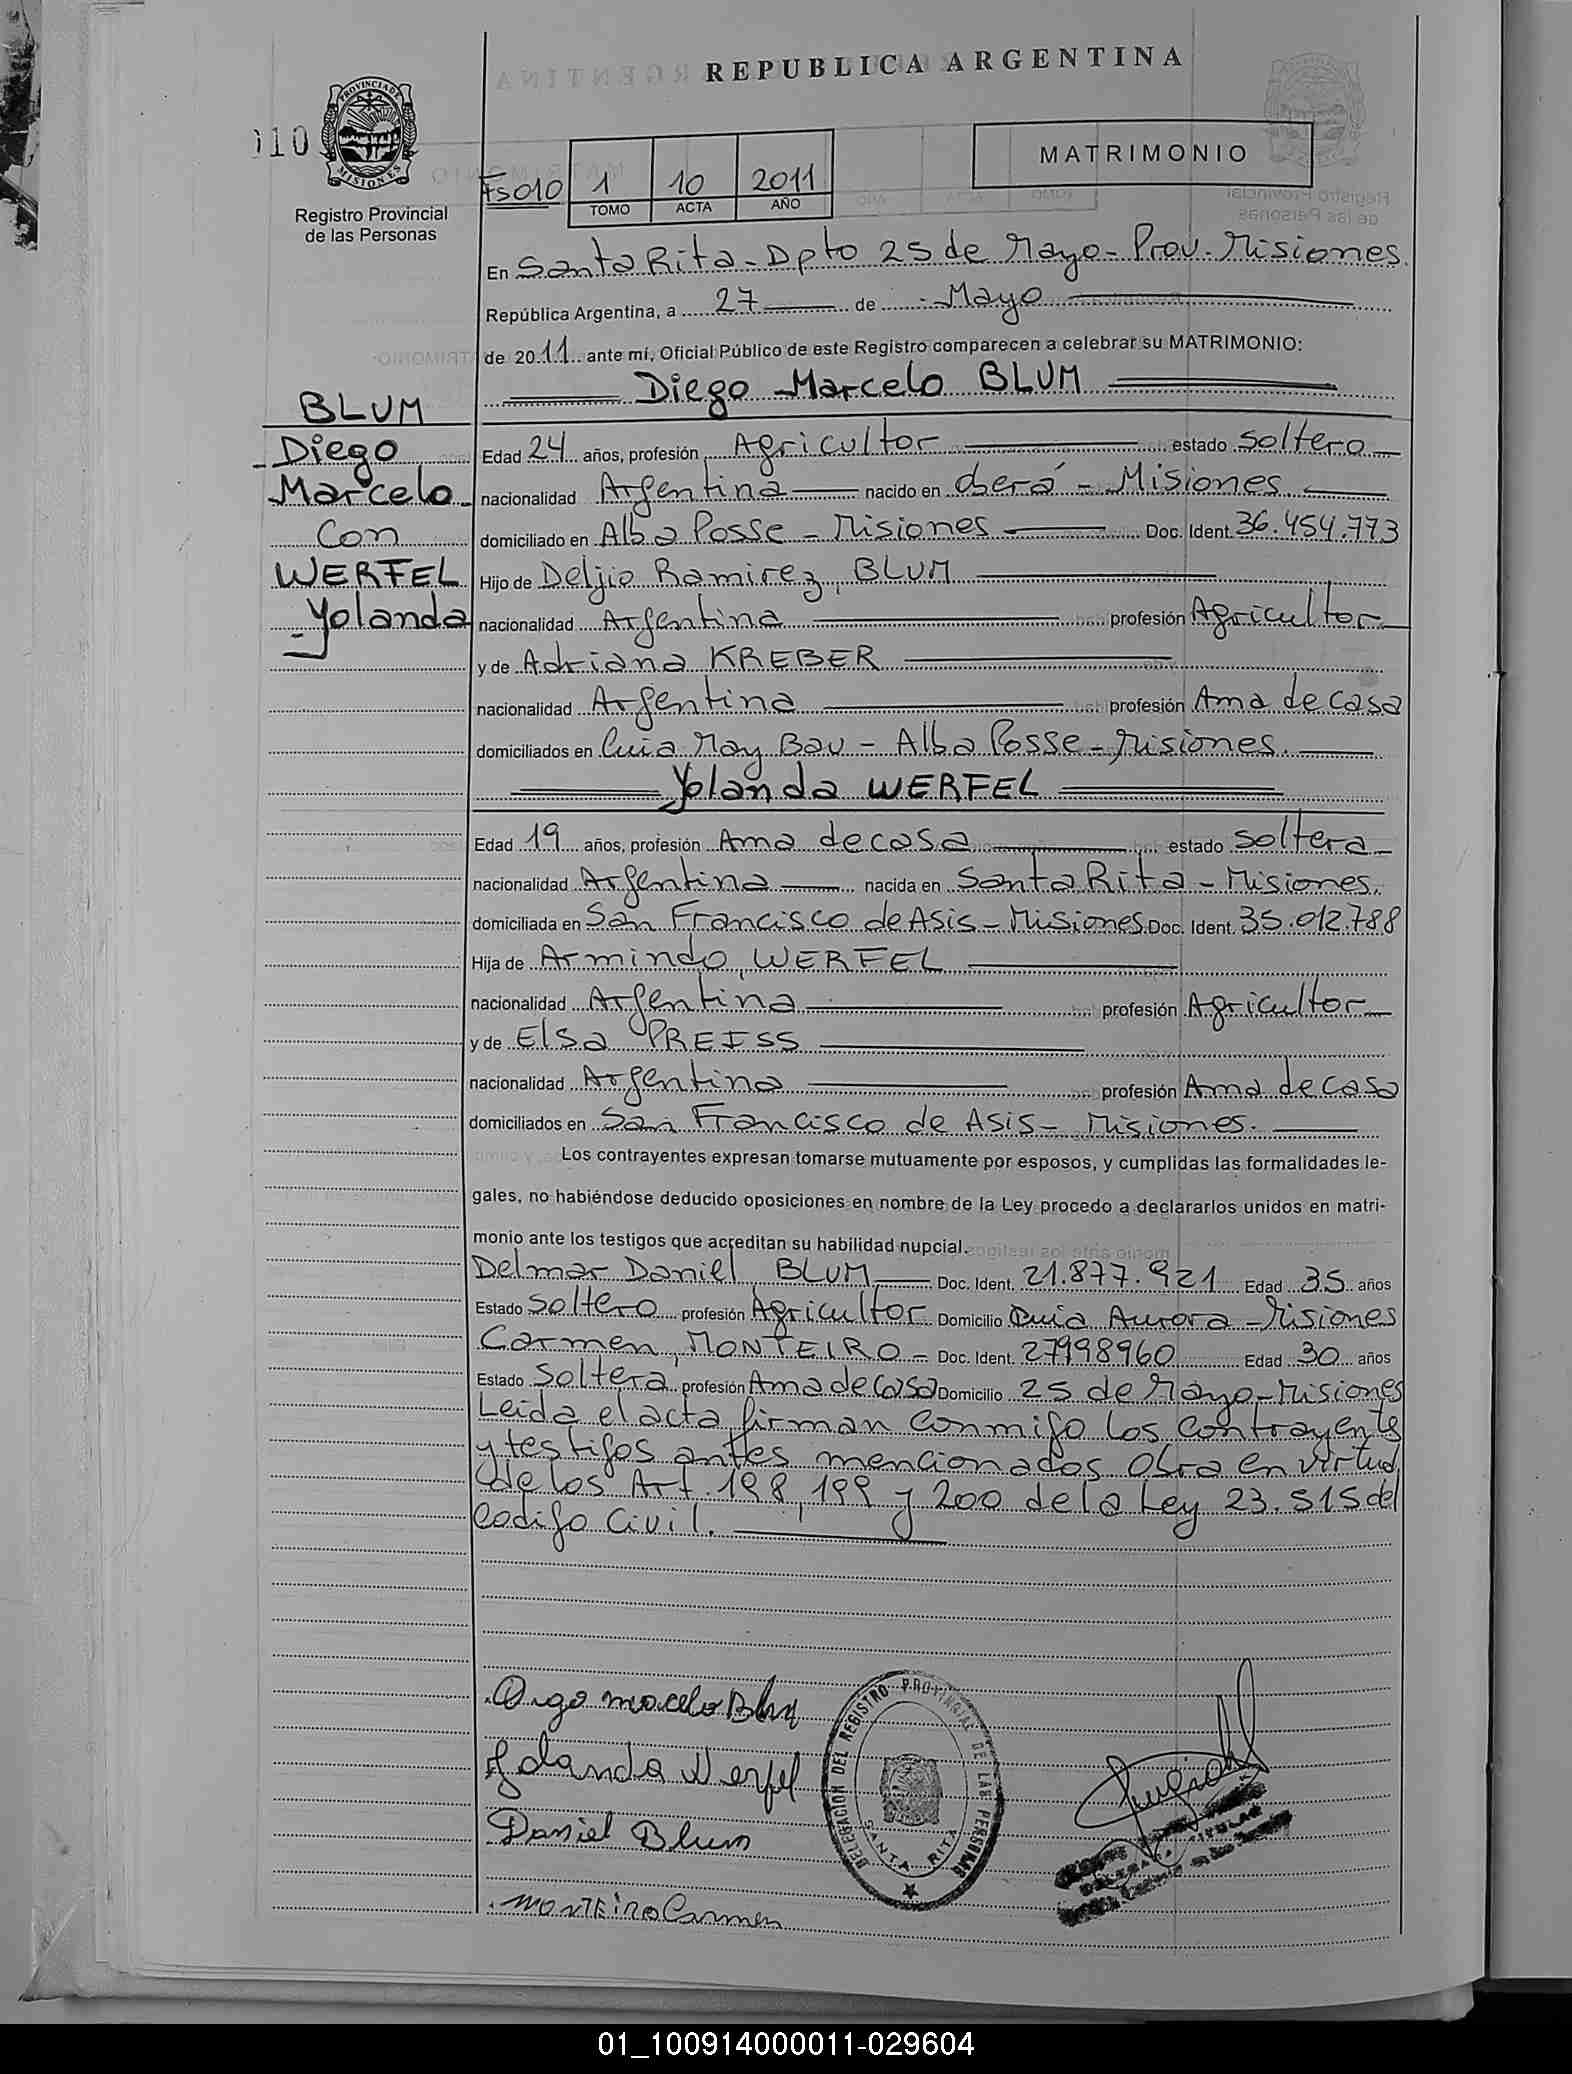 REPUBLICA ARGENTINA
PROVINCIA DE MISIONES
010
Registro Provincial
de las Personas
FS010 1 10 2011
TOMO ACTA AÑO
MATRIMONIO
En Santa Rita - Dpto 25 de Mayo - Prov. Misiones.
República Argentina, a 27 de Mayo
de 2011 ante mí, Oficial Público de este Registro comparecen a celebrar su MATRIMONIO:
Diego Marcelo BLUM
BLUM
Diego
Marcelo
Con
WERFEL
Yolanda
Edad 24 años, profesión Agricultor estado soltero
nacionalidad Argentina nacido en Oberá - Misiones
domiciliado en Alba Posse - Misiones Doc. Ident. 36.454.773
Hijo de Deljio Ramirez, BLUM
nacionalidad Argentina profesión Agricultor
y de Adriana KREBER
nacionalidad Argentina profesión Ama de casa
domiciliados en Cuia May Bau - Alba Posse - Misiones.
Yolanda WERFEL
Edad 19 años, profesión Ama de casa estado soltera
nacionalidad Argentina nacida en Santa Rita - Misiones.
domiciliada en San Francisco de Asis - Misiones Doc. Ident. 35.012.788
Hija de Armindo, WERFEL
nacionalidad Argentina profesión Agricultor
y de Elsa PREISS
nacionalidad Argentina profesión Ama de casa
domiciliados en San Francisco de Asis - Misiones.
Los contrayentes expresan tomarse mutuamente por esposos, y cumplidas las formalidades le-
gales, no habiéndose deducido oposiciones en nombre de la Ley procedo a declararlos unidos en matri-
monio ante los testigos que acreditan su habilidad nupcial.
Delmar Daniel BLUM Doc. Ident. 21.877.921 Edad 35 años
Estado soltero profesión Agricultor Domicilio Cuia Aurora - Misiones
Carmen, MONTEIRO - Doc. Ident. 27998960 Edad 30 años
Estado Soltera profesión Ama de Casa Domicilio 25 de Mayo - Misiones
Leida el acta firman conmigo los contrayentes
y testigos antes mencionados Obra en virtud
de los Art. 188, 199 y 200 de la Ley 23.515 del
Codigo Civil.
Diego Marcelo Blum
Yolanda Werfel
Daniel Blum
MONTEIRO Carmen
DELEGACION DEL REGISTRO PROVINCIAL DE LAS PERSONAS
SANTA RITA
01_100914000011-029604